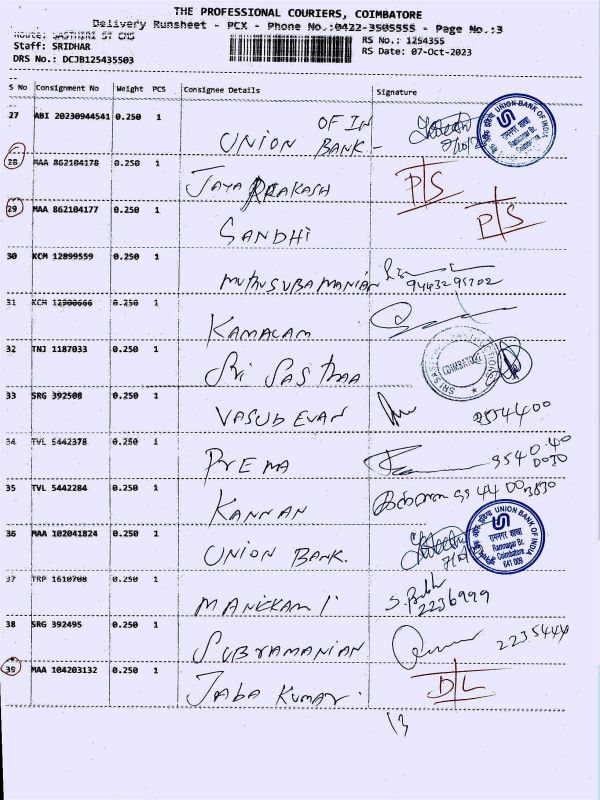 THE PROFESSIONAL COURIERS, COIMBATORE
Delivery Runsheet - PCX - Phone No.:0422-3505555 - Page No.:3
Route: SASTHIRI ST CNS
RS No.: 1254355
Staff: SRIDHAR
RS Date: 07-Oct-2023
DRS No.: DCJB125435503
S No Consignment No Weight PCS Consignee Details Signature
27 ABI 20230944541 0.250 1 UNION BANK OF IN
UNION BANK OF INDIA
28 MAA 862104178 0.250 1 JAYA PRAKASH P/S
29 MAA 862104177 0.250 1 SANDHI P/S
30 KCM 12899559 0.250 1 MUTHUSUBAMANIAN
9443295202
31 KCM 12900666 0.250 1 KAMALAM
32 TNJ 1187033 0.250 1 Sri SASTHAA
COIMBATORE
33 SRG 392508 0.250 1 VASUDEVAN
34 TVL 5442378 0.250 1 PREMA
35 TVL 5442284 0.250 1 KANNAN
36 MAA 102041824 0.250 1 UNION BANK.
UNION BANK OF INDIA
Ramnagar Br.
Coimbatore
641 009
37 TRP 1610708 0.250 1 MANICKAM
2236999
38 SRG 392495 0.250 1 SUBRAMANIAN 2235444
39 MAA 104203132 0.250 1 Jaba Kumar D/L
13